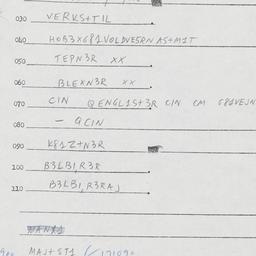 030 VERKS+TIL
040 HOB3X6P1VOLDVE5RNAS+M1T
050 TEPN3R XX
060 BLEKN3R XX
070 CIN QENGL1S+3R CIN CM GP1VEJN
080 - QCIN
090 KP1Z+N3R
100 B3LB1,R3R
110 B3LB1,R3RAJ
MAJ+ST1